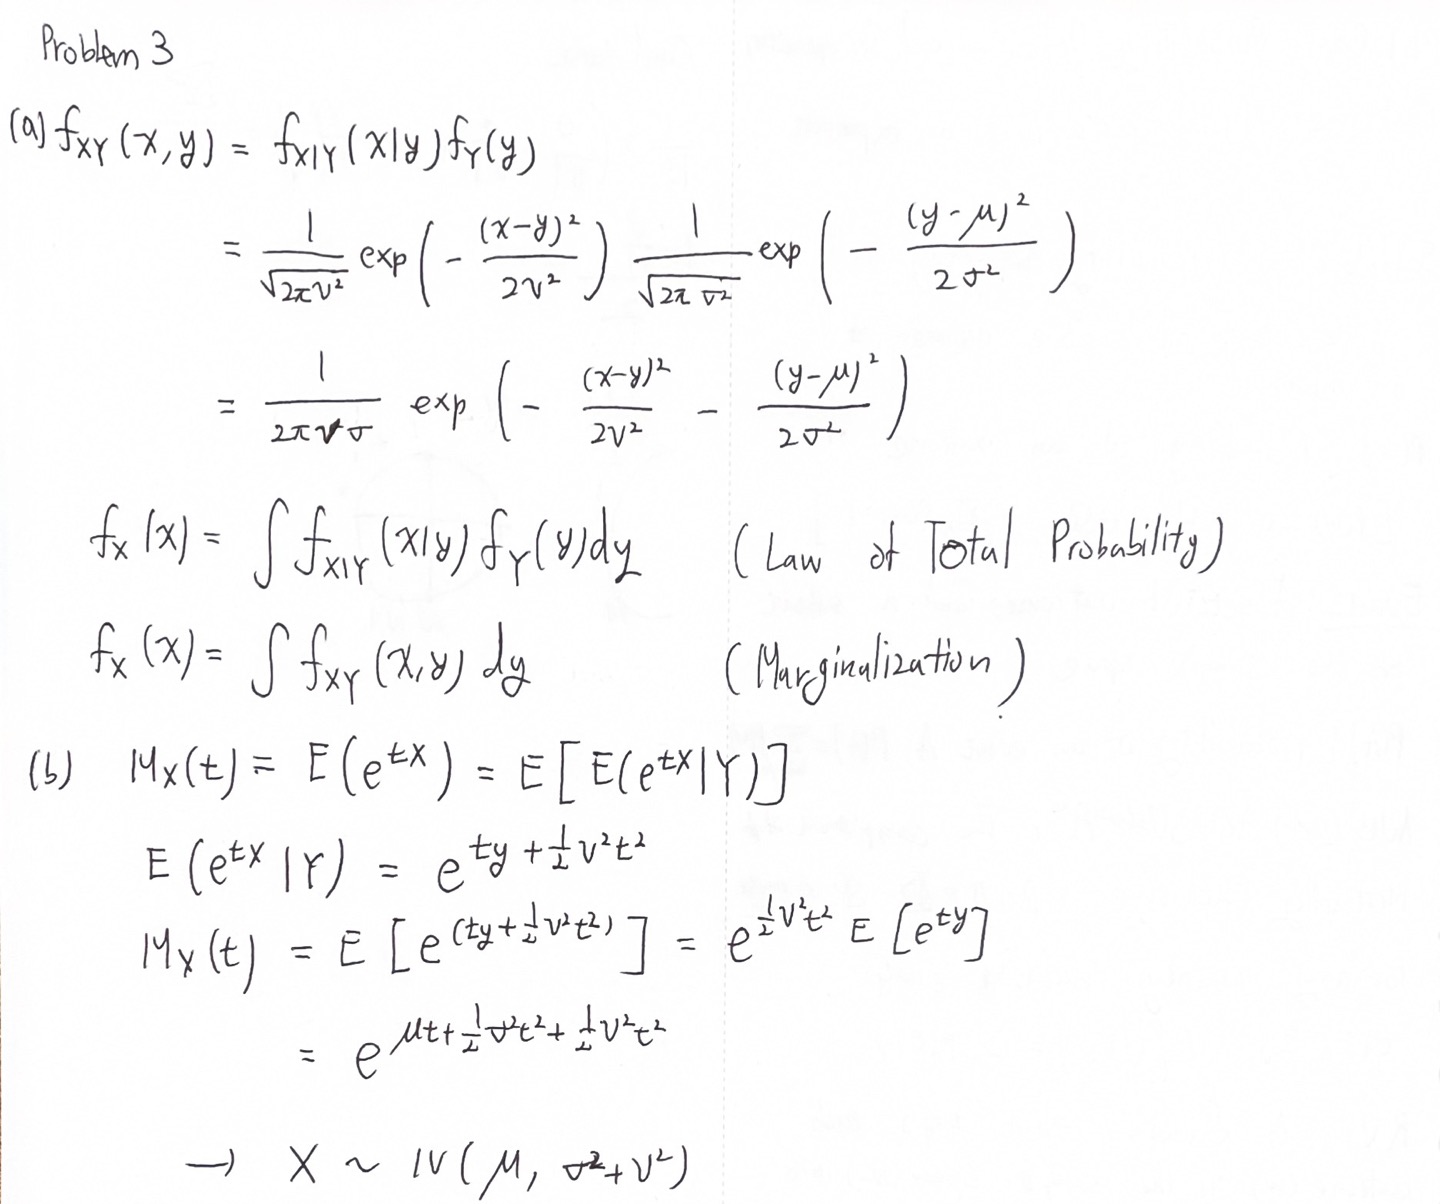 Problem 3
(a) f_{XY}(x,y) = f_{X|Y}(x|y) f_Y(y)
= \frac{1}{\sqrt{2πν²}} exp(- \frac{(x-y)²}{2ν²}) \frac{1}{\sqrt{2π σ²}} exp(- \frac{(y-μ)²}{2σ²})
= \frac{1}{2πνσ} exp(- \frac{(x-y)²}{2ν²} - \frac{(y-μ)²}{2σ²})
f_X(x) = ∫ f_{X|Y}(x|y) f_Y(y)dy (Law of Total Probability)
f_X(x) = ∫ f_{XY}(x,y) dy (Marginalization)
(b) M_X(t) = E(e^{tX}) = E[E(e^{tX}|Y)]
E(e^{tX}|Y) = e^{ty + \frac{1}{2}ν²t²}
M_X(t) = E[e^{(ty + \frac{1}{2}ν²t²)}] = e^{\frac{1}{2}ν²t²} E[e^{ty}]
= e^{μt + \frac{1}{2}σ²t² + \frac{1}{2}ν²t²}
→ X ~ N(μ, σ²+ν²)